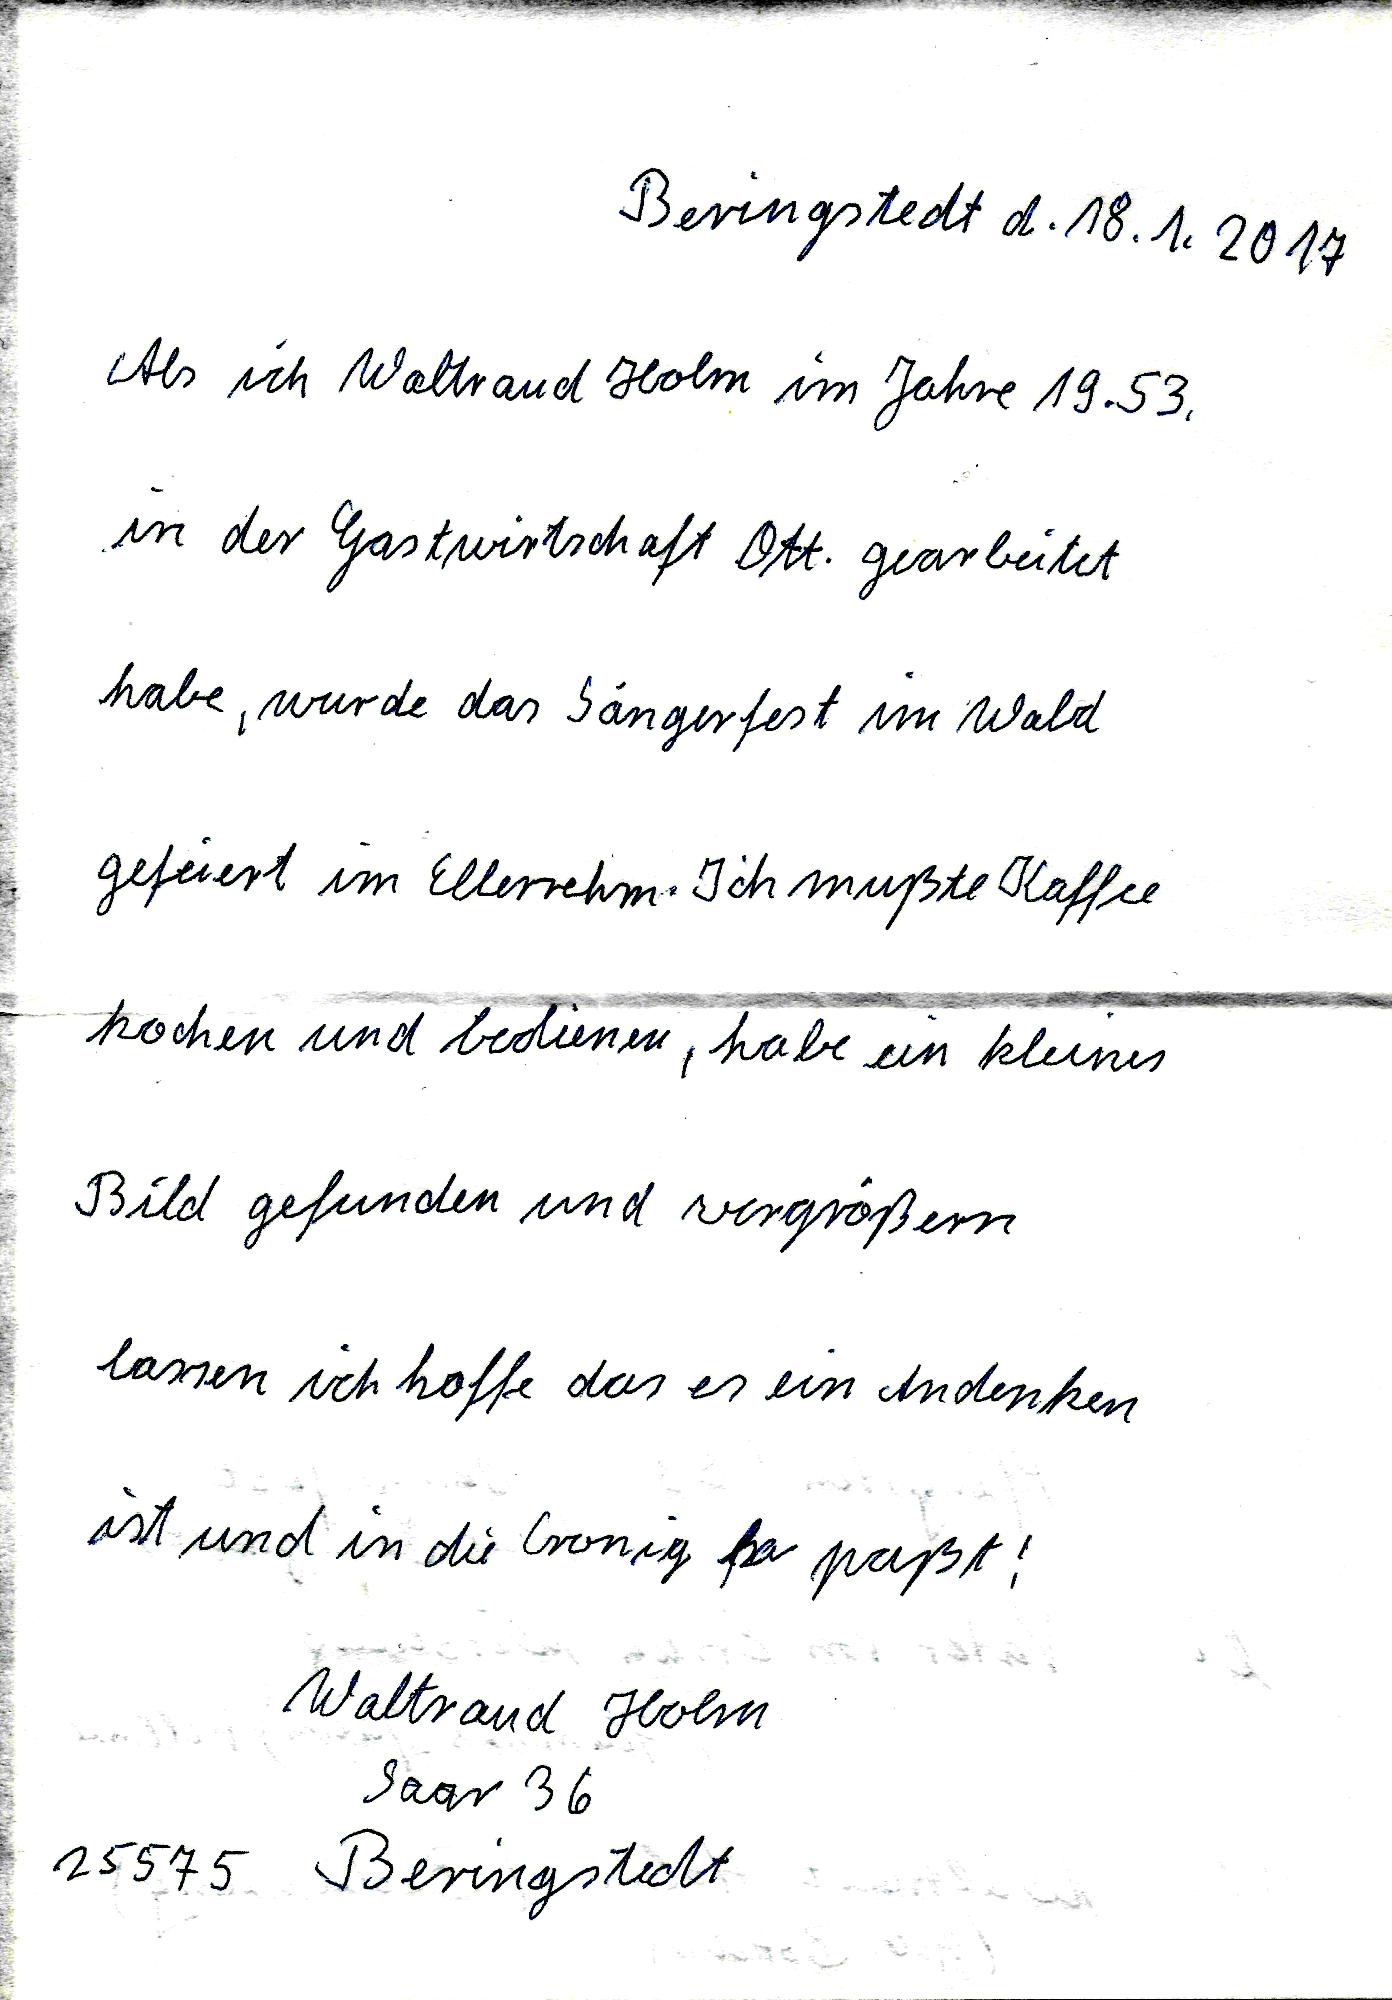 Beringstedt d. 18. 1. 2017
Als ich Waltraud Holm im Jahre 19.53.
in der Gastwirtschaft Ott. gearbeitet
habe, wurde das Sängerfest im Wald
gefeiert im Ellerrehm. Ich mußte Kaffee
kochen und bedienen, habe ein kleines
Bild gefunden und vergrößern
lassen ich hoffe das es ein Andenken
ist und in die Cronig paßt!
Waltraud Holm
Saar 36
25575 Beringstedt